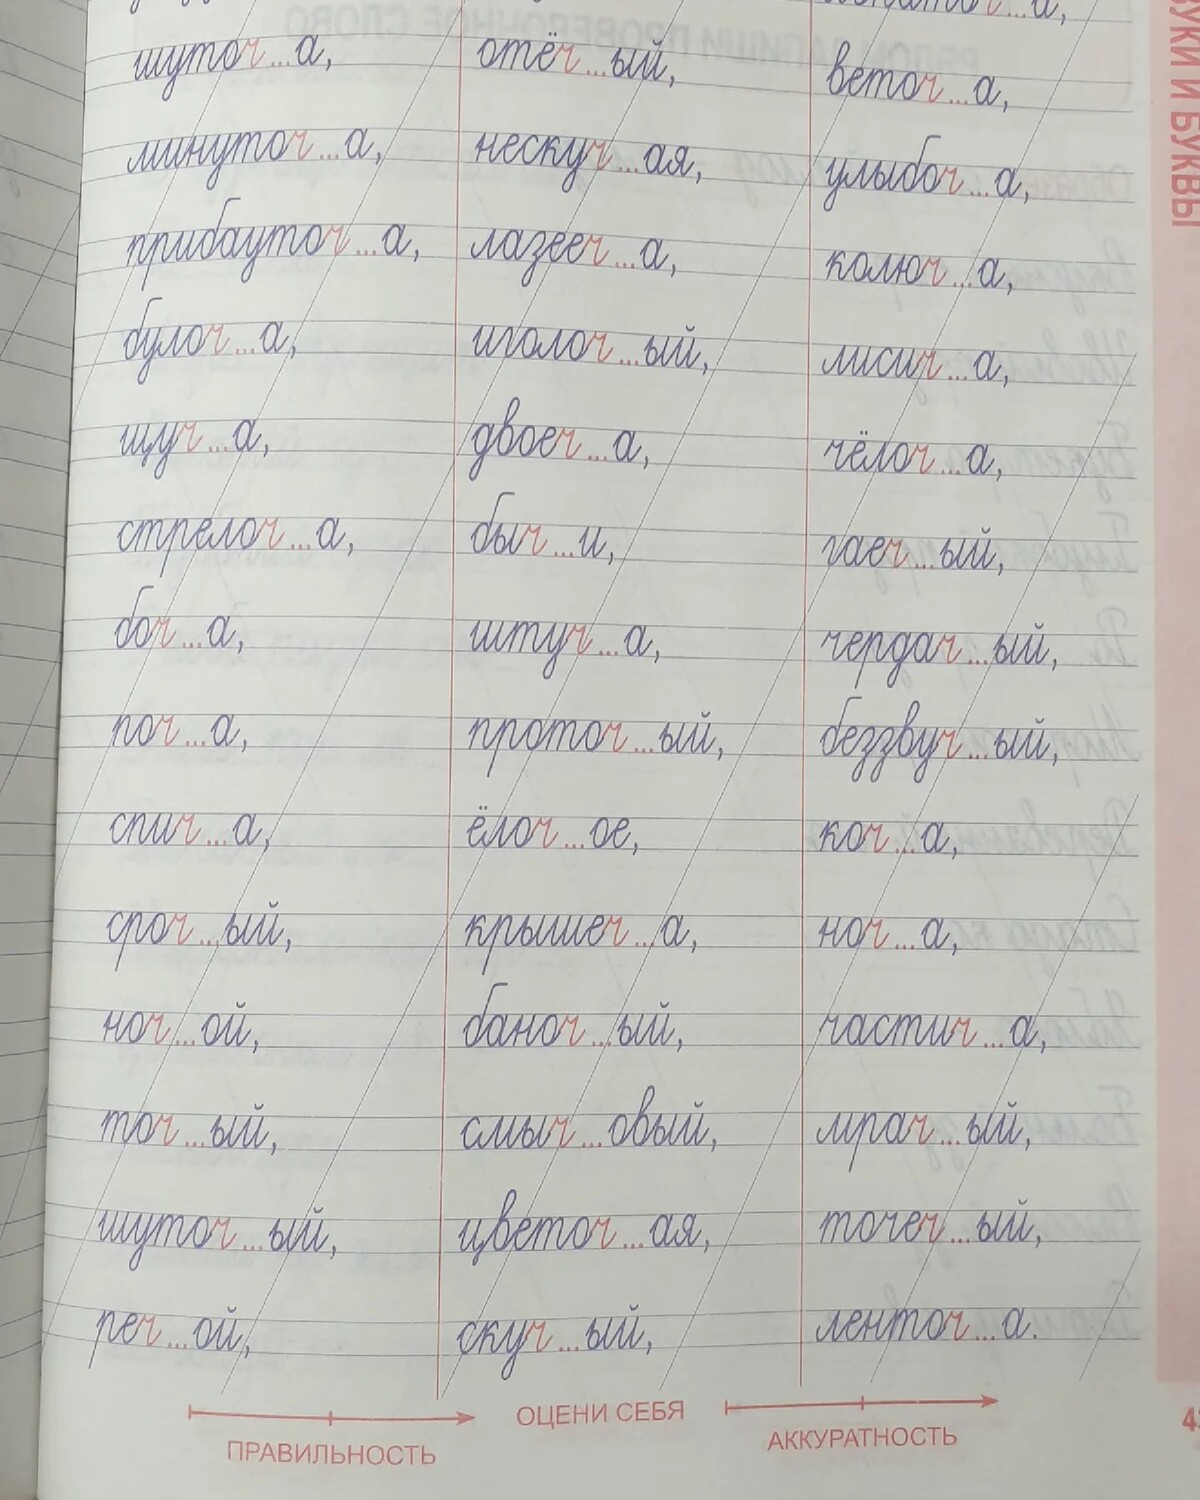 шуточ...а, отёч...ый, веточ...а,
минуточ...а, нескуч...ая, улыбоч...а,
прибауточ...а, лазееч...а, колюч...а,
булоч...а, иголоч...ый, лисич...а,
щуч...а, двоеч...а, чёлоч...а,
стрелоч...а, быч...и, гаеч...ый,
боч...а, штуч...а, чердач...ый,
поч...а, проточ...ый, беззвуч...ый,
спич...а, ёлоч...ое, коч...а,
сроч...ый, крышеч...а, ноч...а,
ноч...ой, баноч...ый, частич...а,
точ...ый, смыч...овый, мрач...ый,
шуточ...ый, цветоч...ая, точеч...ый,
реч...ой, скуч...ый, ленточ...а.
ОЦЕНИ СЕБЯ
ПРАВИЛЬНОСТЬ АККУРАТНОСТЬ
УКИ И БУКВЫ